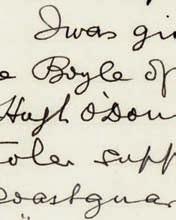 I was gi
e Boyle of
Hugh O'Don
toler supp
oastguar